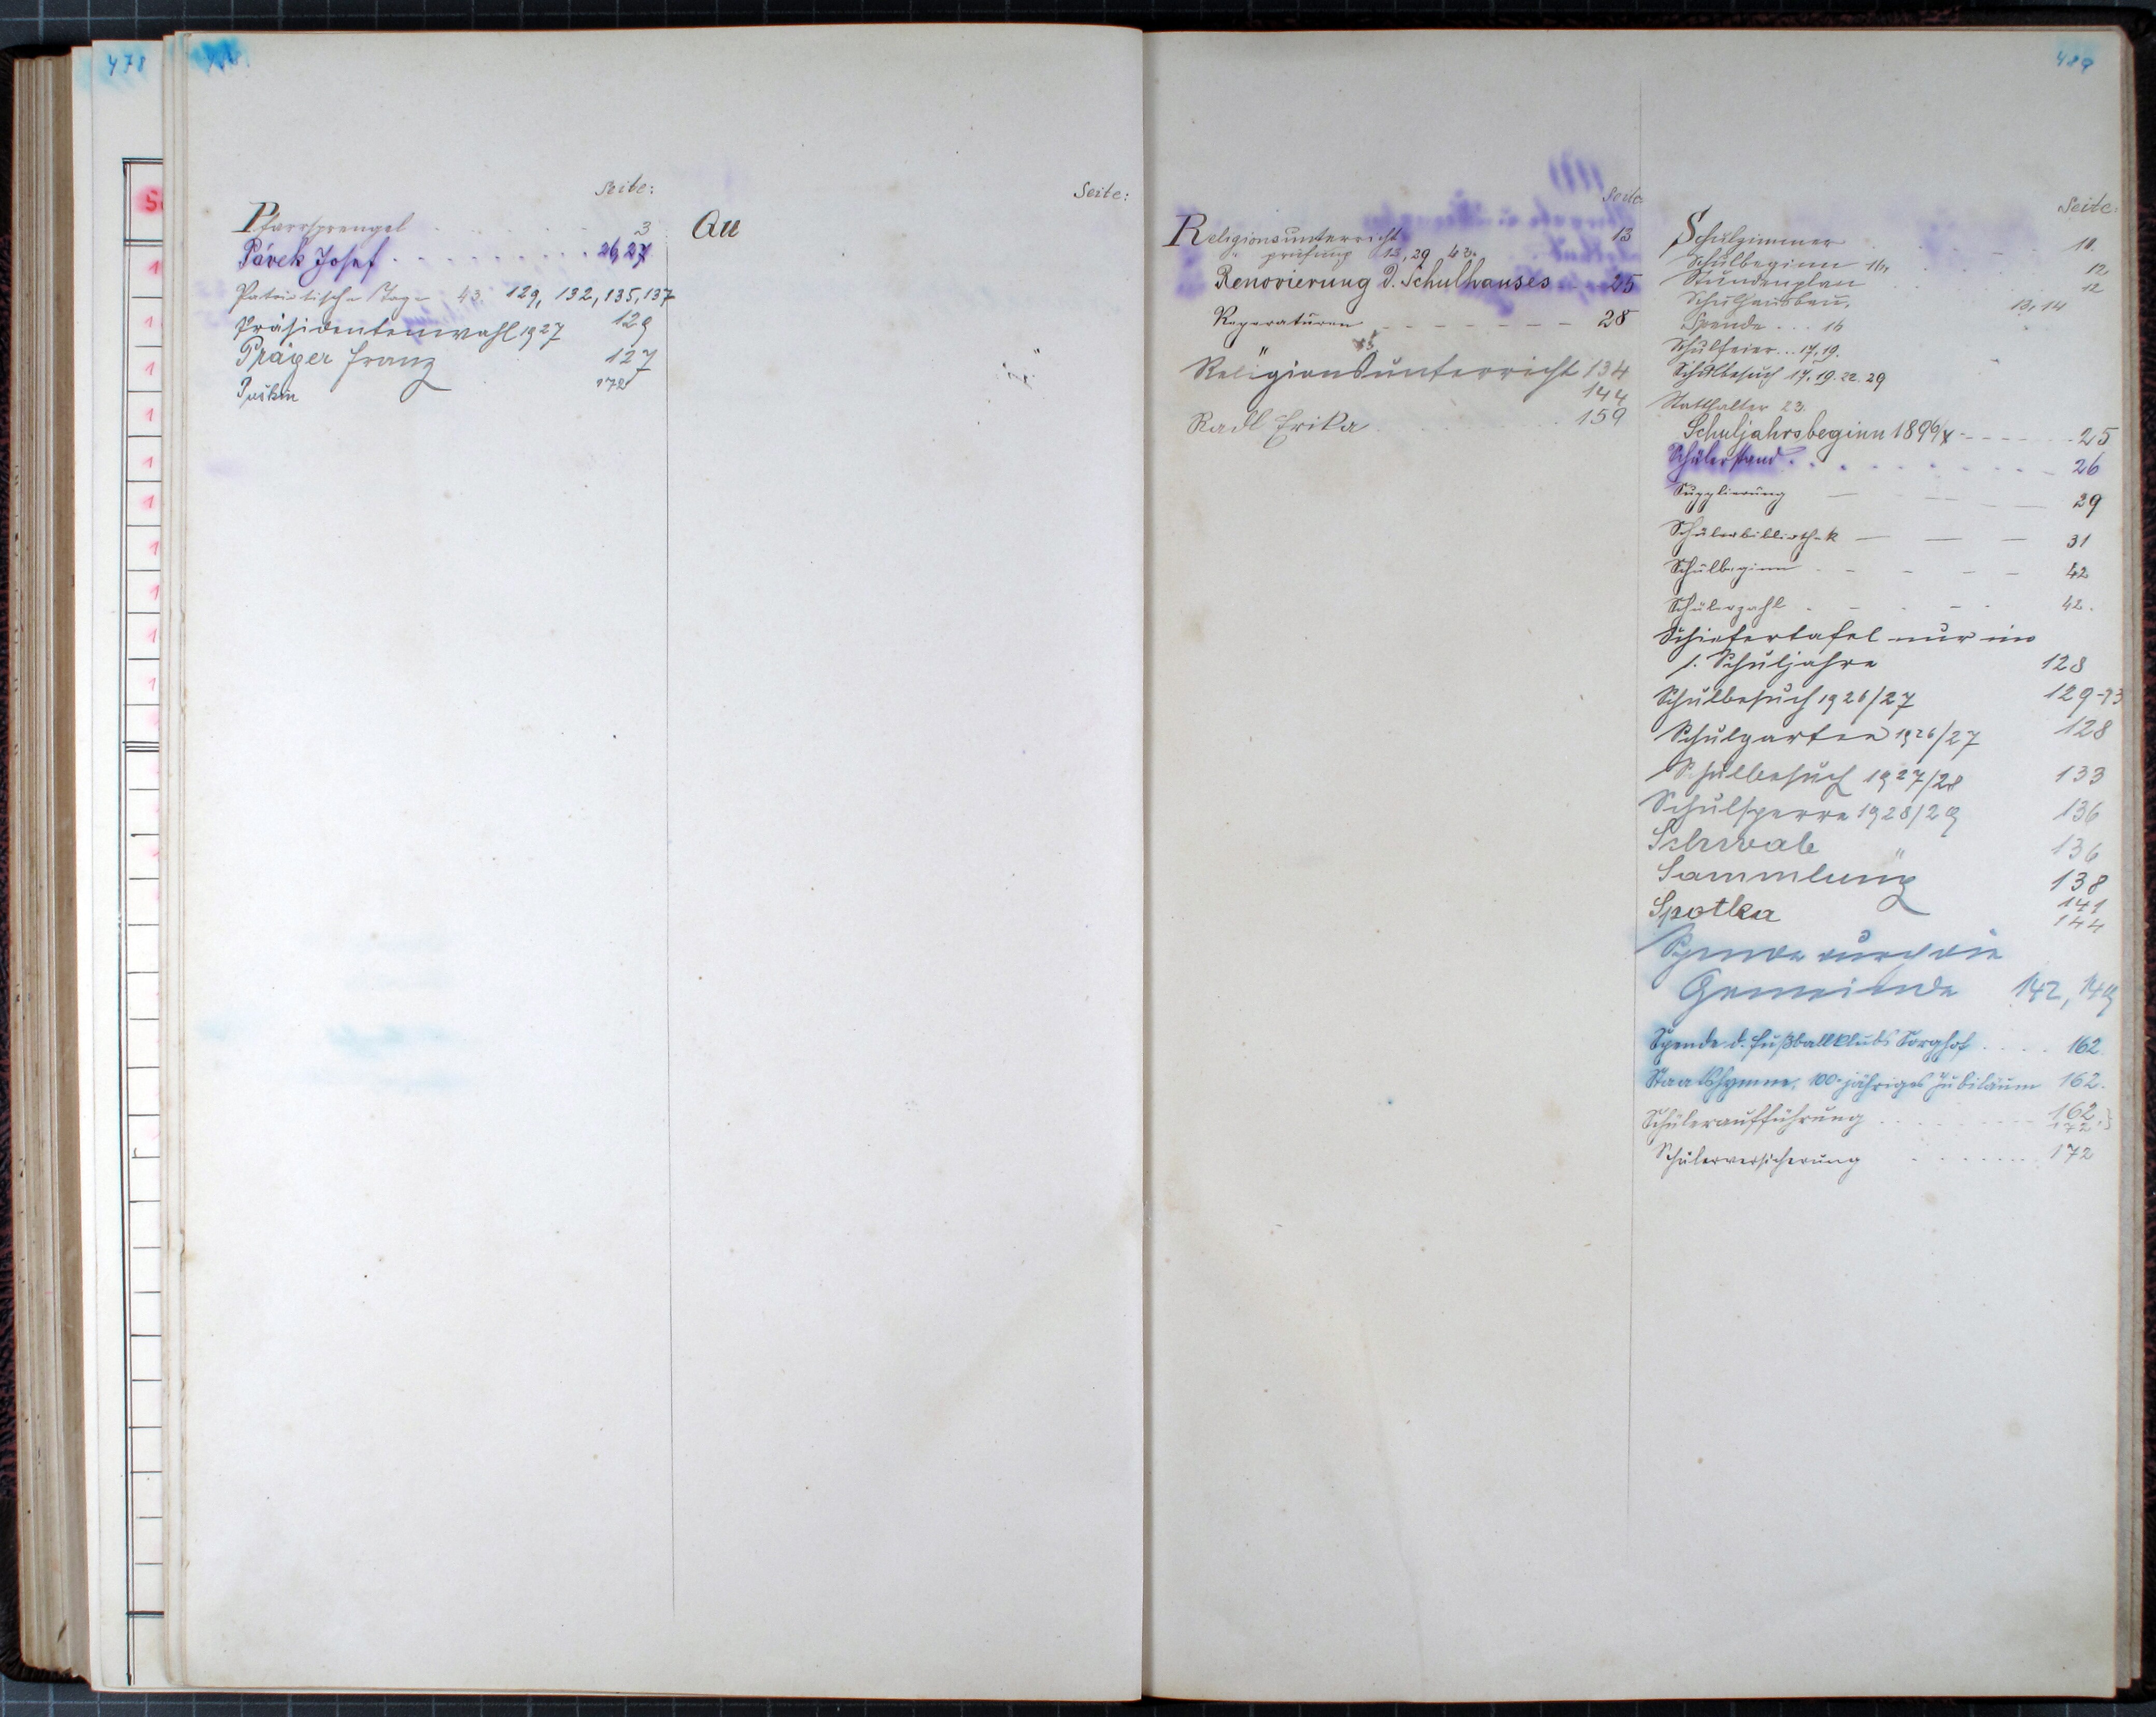 478
Seite:
Pfarrsprengel 3
Párek Josef 26, 27
Patriotische Tage 43 129, 132, 135, 137
Präsidentenwahl 1927 129
Präger Franz 127
Puškin 172
Seite:
Qu
489
Seite:
Religionsunterricht 13
" prüfung 13, 29 43.
Renovierung d. Schulhauses 25
Reparaturen 28
Religionsunterricht 134
144
Radl Erika 159
Seite:
Schulzimmer 10.
Schulbeginn 16. 12
Stundenplan 12
Schulhausbau, 13, 14
Spende ... 16
Schulfeier ... 17, 19.
Schulbesuch 17. 19. 22. 29
Statthalter 23.
Schuljahrsbeginn 1896/7 25
Schülerstand 26
Supplierung 29
Schülerbibliothek 31
Schulbeginn 42
Schülerzahl 42.
Schiefertafel nur im
1. Schuljahre 128
Schulbesuch 1926/27 129-
Schulgarten 1926/27 128
Schulbesuch 1927/28 133
Schulsperre 1928/29 136
Schwab " 136
Sammlung 138
141
Spotka 144
Spende durch die
Gemeinde 142, 149
Spende d. Fußballklubs Sorghof 162
Staatshymne, 100-jähriges Jubiläum 162.
Schüleraufführung 162,
172
Schülerversicherung 172